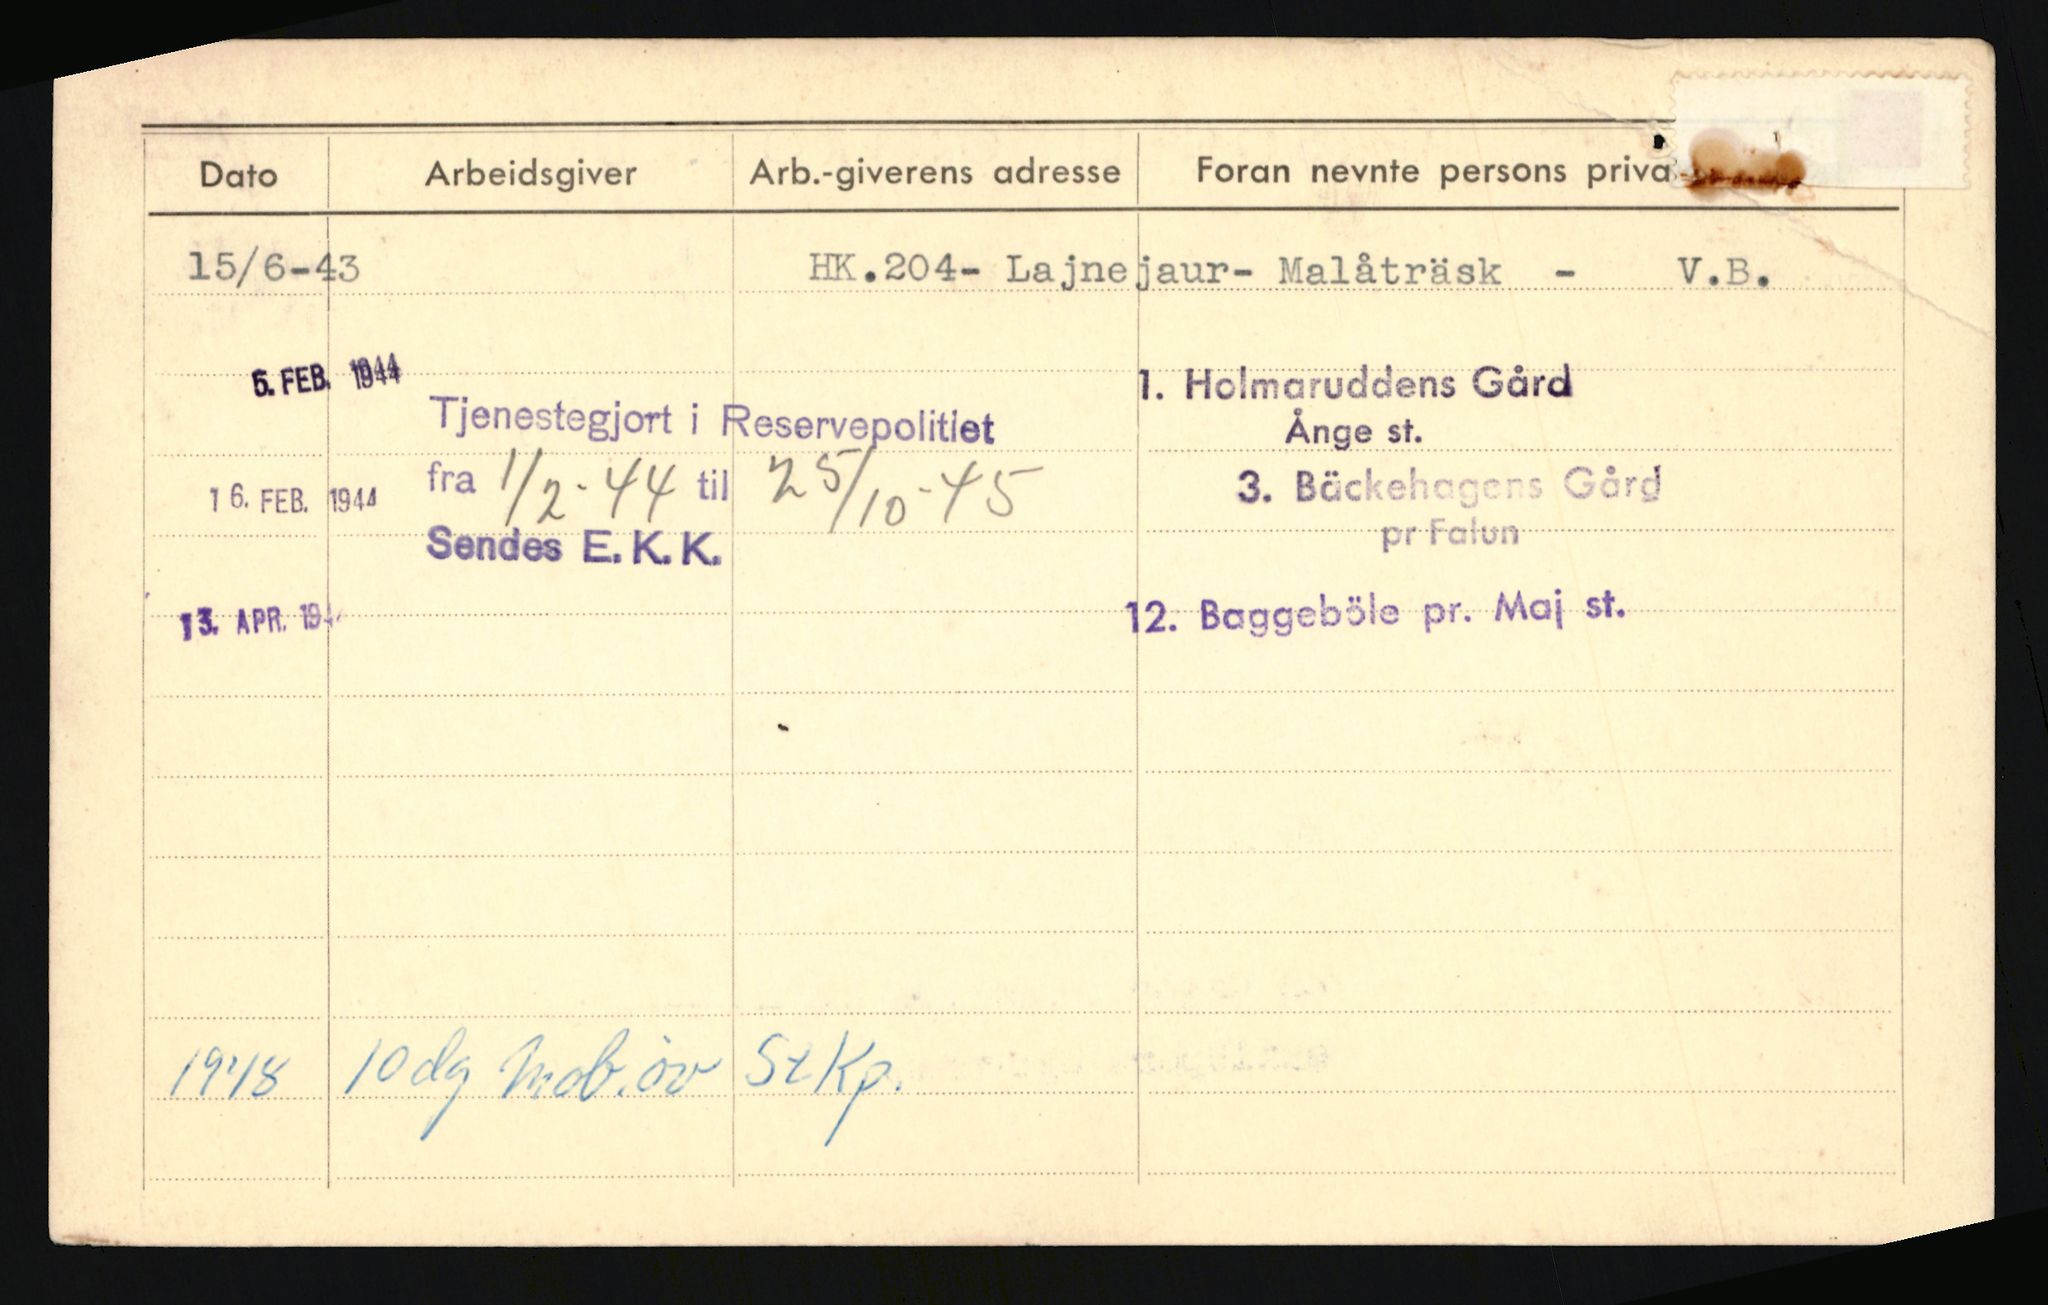 Dato Arbeidsgiver Arb.-giverens adresse Foran nevnte persons priva
15/6-43 HK.204- Lajnejaur- Malåträsk - V.B.
5. FEB. 1944 1. Holmaruddens Gård
Ånge st.
Tjenestegjort i Reservepolitiet
16. FEB. 1944 fra 1/2-44 til 25/10-45 3. Bäckehagens Gård
pr Falun
Sendes E.K.K.
13. APR. 194 12. Baggeböle pr. Maj st.
1948 10 dg mob.öv St Kp.